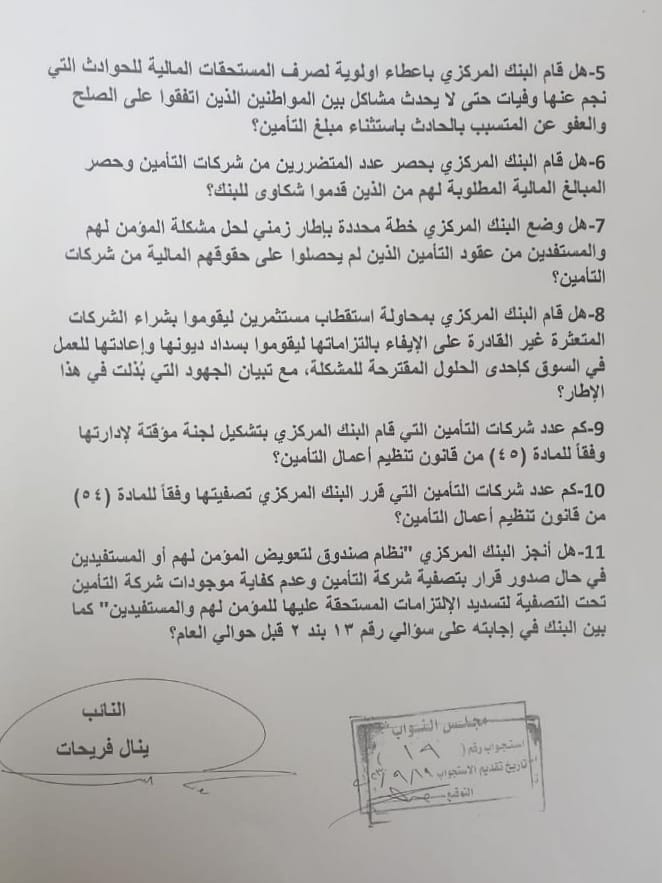 5-هل قام البنك المركزي باعطاء اولوية لصرف المستحقات المالية للحوادث التي
نجم عنها وفيات حتى لا يحدث مشاكل بين المواطنين الذين اتفقوا على الصلح
والعفو عن المتسبب بالحادث باستثناء مبلغ التأمين؟
6-هل قام البنك المركزي بحصر عدد المتضررين من شركات التأمين وحصر
المبالغ المالية المطلوبة لهم من الذين قدموا شكاوى للبنك؟
7-هل وضع البنك المركزي خطة محددة بإطار زمني لحل مشكلة المؤمن لهم
والمستفدين من عقود التأمين الذين لم يحصلوا على حقوقهم المالية من شركات
التأمين؟
8-هل قام البنك المركزي بمحاولة استقطاب مستثمرين ليقوموا بشراء الشركات
المتعثرة غير القادرة على الإيفاء بالتزاماتها ليقوموا بسداد ديونها وإعادتها للعمل
في السوق كإحدى الحلول المقترحة للمشكلة، مع تبيان الجهود التي بُذلت في هذا
الإطار؟
9-كم عدد شركات التأمين التي قام البنك المركزي بتشكيل لجنة مؤقتة لإدارتها
وفقاً للمادة (٤٥) من قانون تنظيم أعمال التأمين؟
10-كم عدد شركات التأمين التي قرر البنك المركزي تصفيتها وفقاً للمادة (٥٤)
من قانون تنظيم أعمال التأمين؟
11-هل أنجز البنك المركزي "نظام صندوق لتعويض المؤمن لهم أو المستفيدين
في حال صدور قرار بتصفية شركة التأمين وعدم كفاية موجودات شركة التأمين
تحت التصفية لتسديد الإلتزامات المستحقة عليها للمؤمن لهم والمستفيدين" كما
بين البنك في إجابته على سؤالي رقم ١٣ بند ٢ قبل حوالي العام؟
النائب
ينال فريحات
مجلس النواب
استجواب رقم ( ١٩ )
تاريخ تقديم الاستجواب ٩/١٩
التوقيع